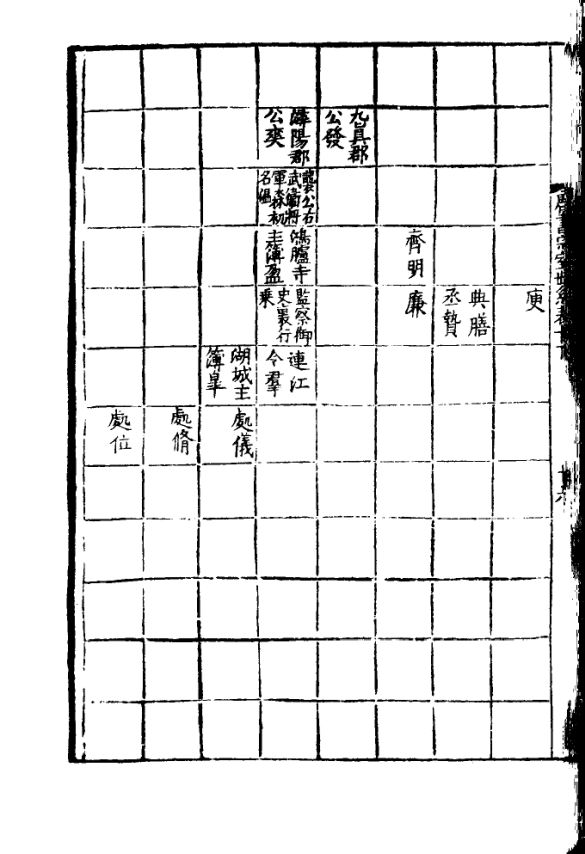 庾
典膳
丞贄
齊明
廉
九真郡
公發
陽郡
公奕
襲公右
武衞將
軍森初
名偘
鴻臚寺
主簿盈
監察御
史裏行
乘
連江
令羣
湖城主
簿皐
處儀
處脩
處位